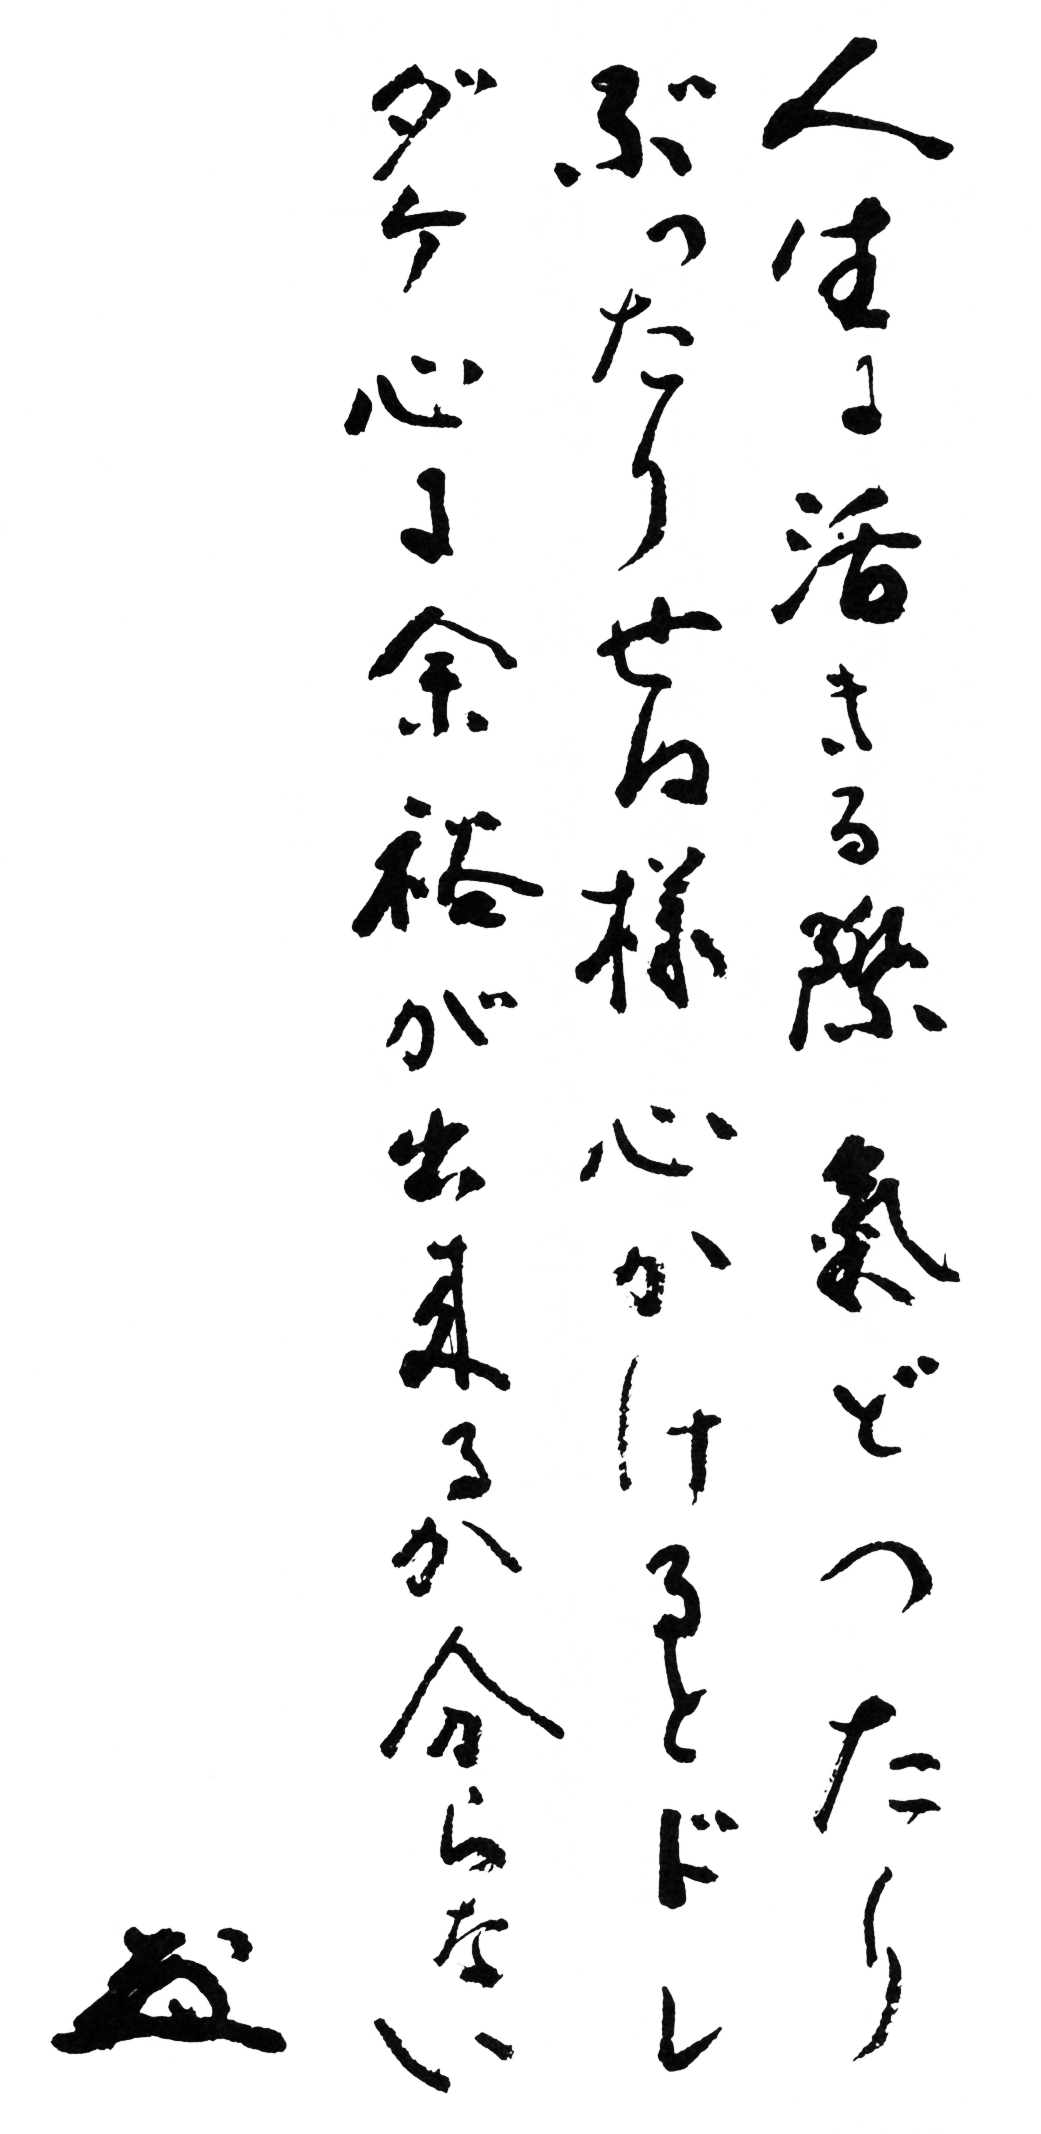 人生に活きる際 氣どつたり
ぶったりせぬ様 心かけるとドレ
ダケ心に余裕が出来るか分らない